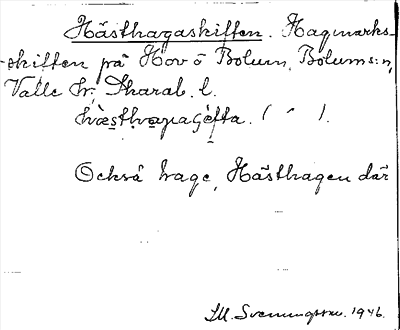 Hästhagaskiften. Hagmarks-
-skiften på Hov ö Bolum, Bolums:n,
Valle hr, Skarab. l.
( " ).
Också hage, Hästhagen där
M. Svenungsson. 1946.